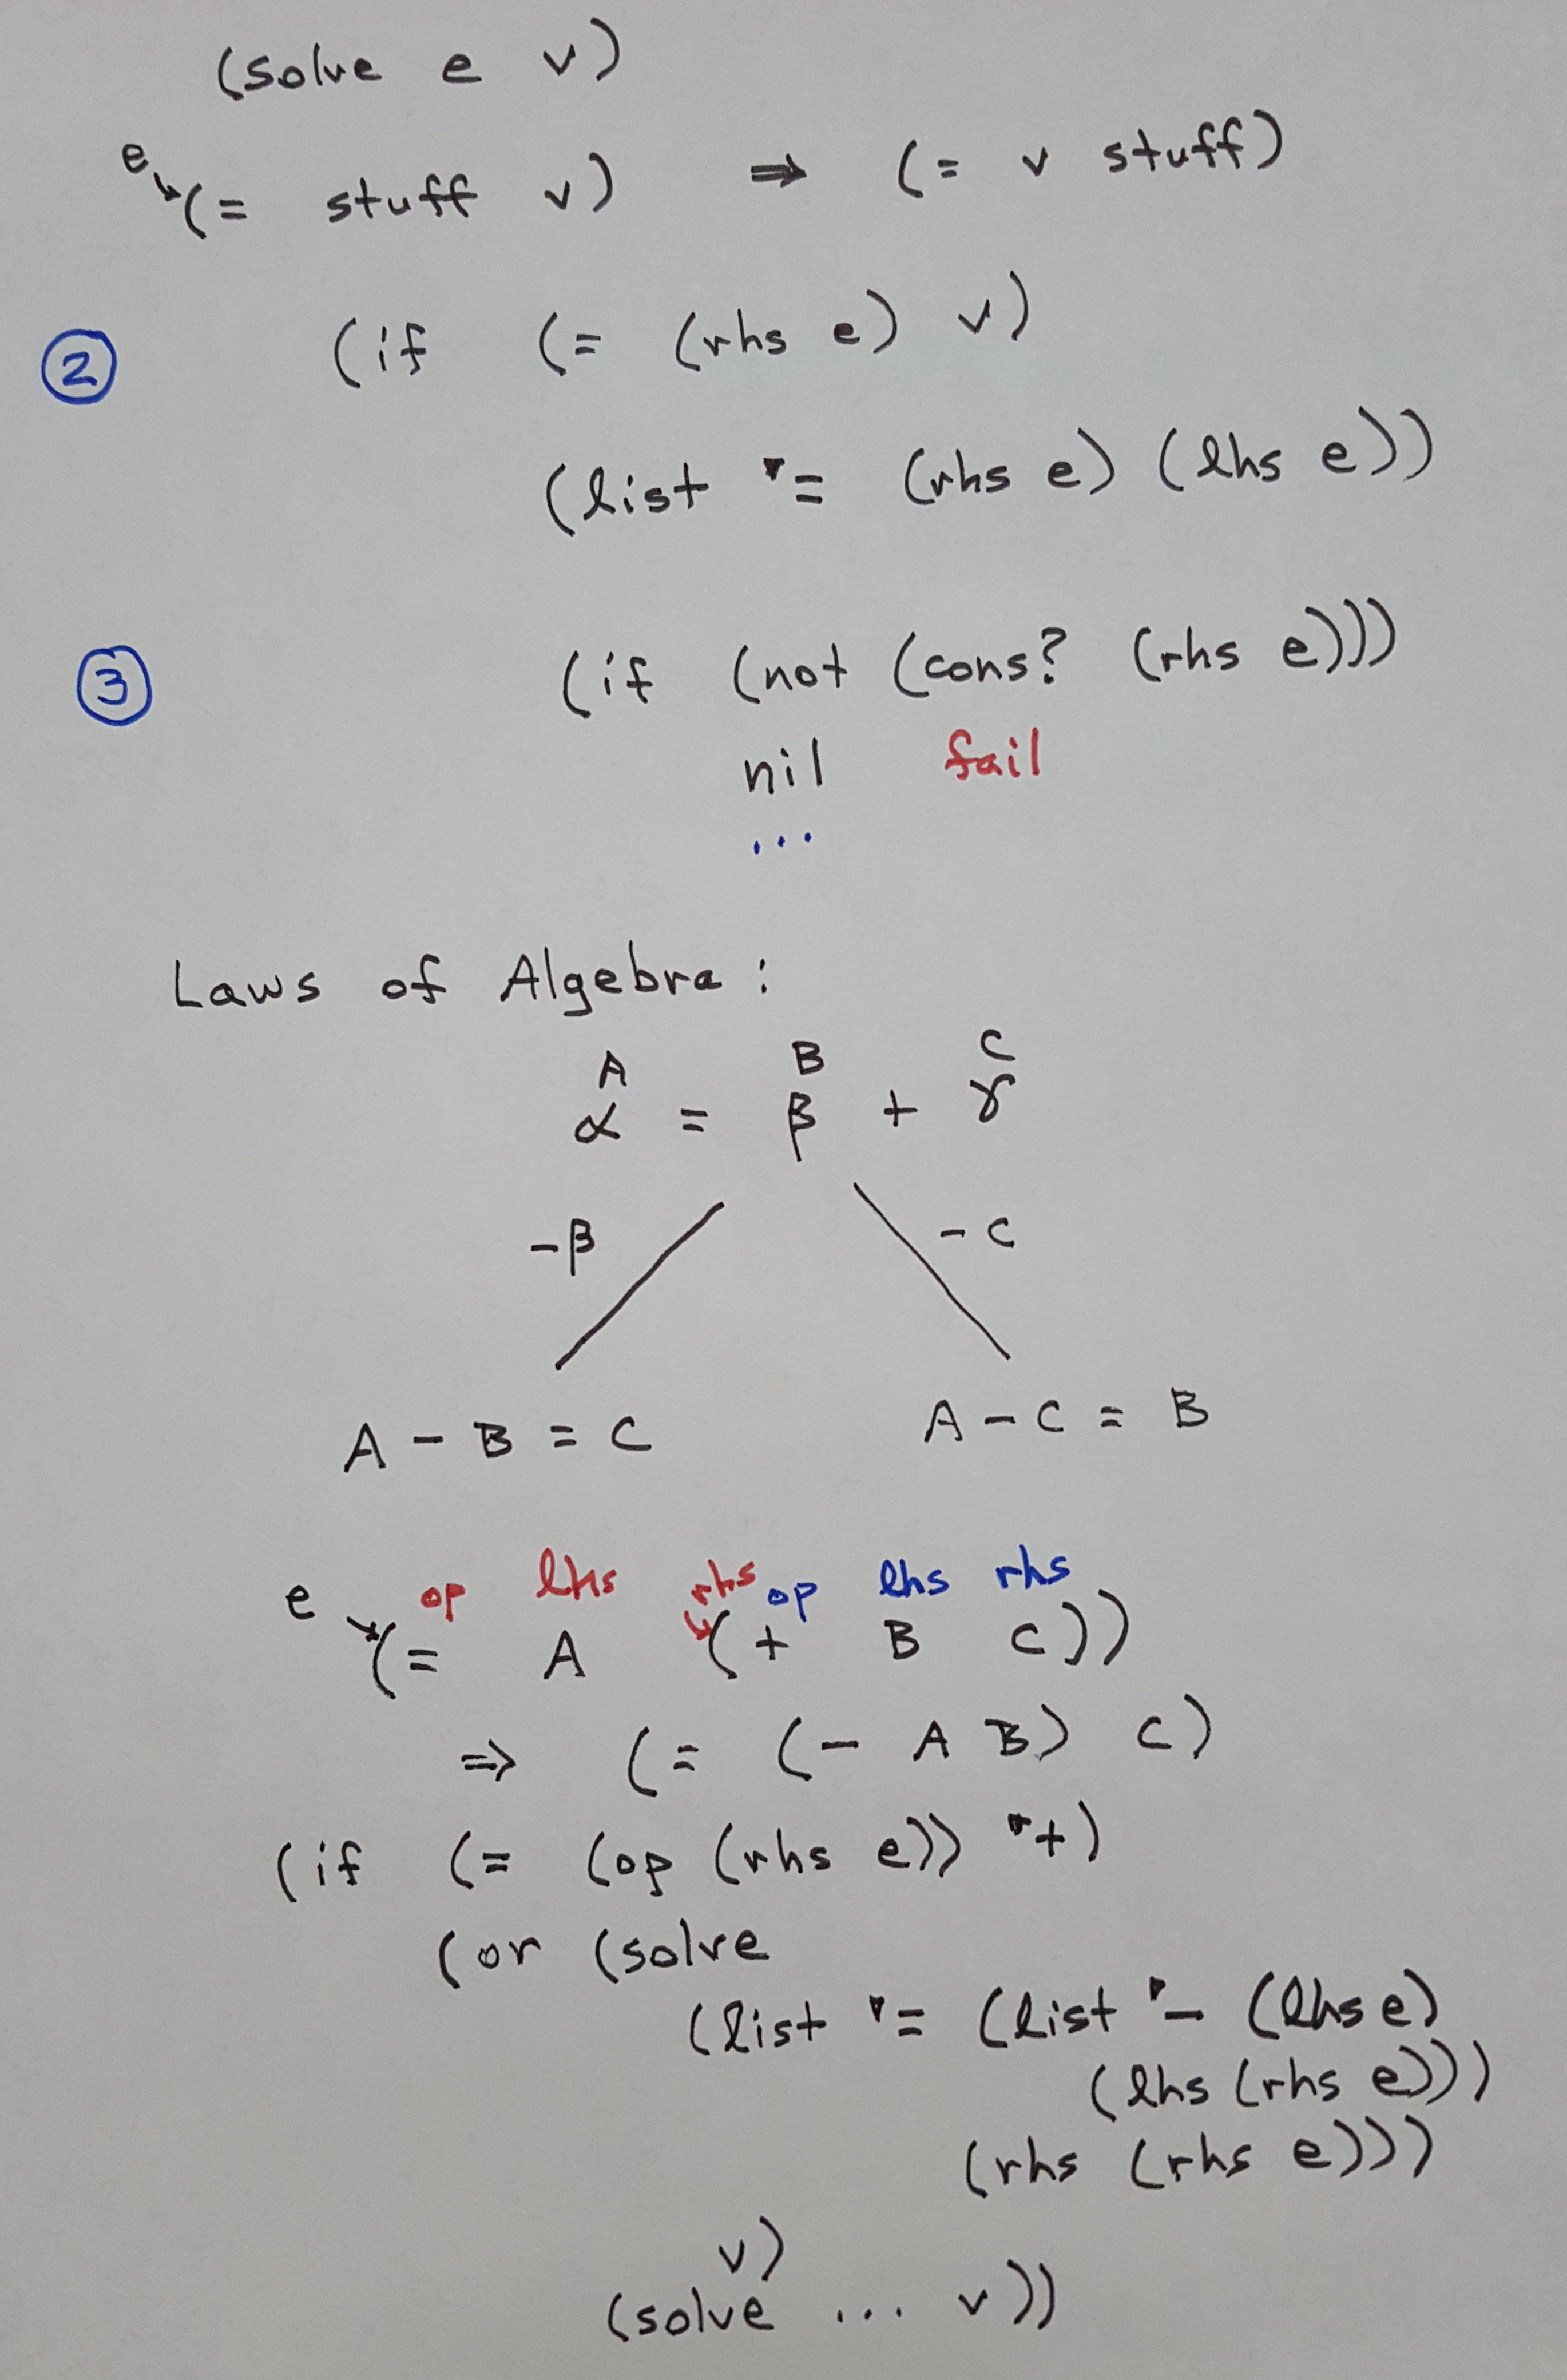 (solve e v)
e (= stuff v) ⇒ (= v stuff)
② (if (= (rhs e) v)
(list '= (rhs e) (lhs e))
③ (if (not (cons? (rhs e)))
nil fail
...
Laws of Algebra :
A B C
α = β + γ
-β - C
A - B = C A - C = B
op lhs rhs op lhs rhs
e (= A (+ B C))
⇒ (= (- A B) C)
(if (= (op (rhs e)) '+)
(or (solve
(list '= (list '- (lhs e)
(lhs (rhs e)))
(rhs (rhs e)))
v)
(solve ... v))